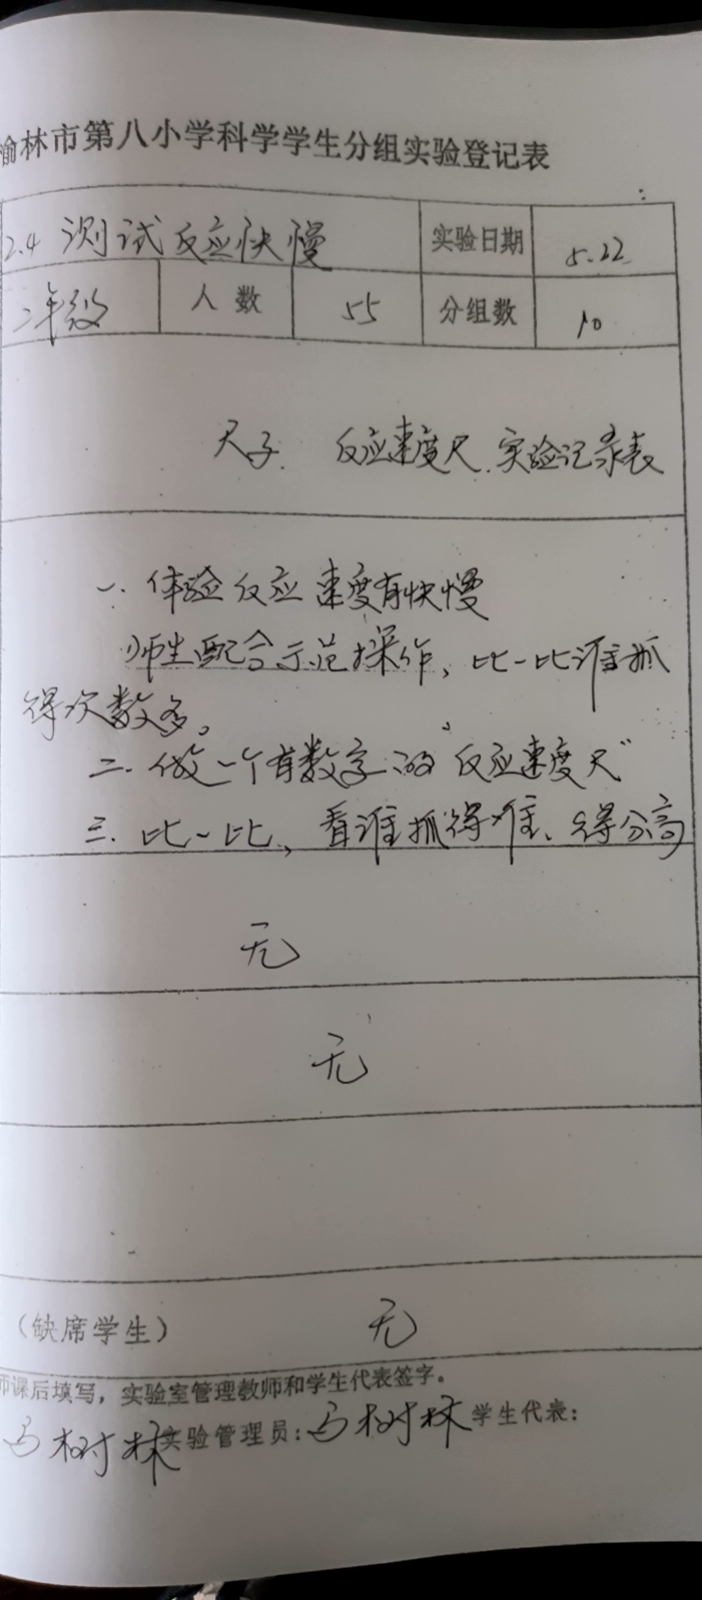 榆林市第八小学科学学生分组实验登记表
2.4 测试反应快慢 实验日期 5.22
二年级 人数 55 分组数 10
尺子. 反应速度尺.实验记录表
一. 体验反应速度有快慢
师生配合示范操作、比一比谁抓
得次数多。
二. 做一个有数字的“反应速度尺”
三. 比一比, 看谁抓得准、得分高
无
无
(缺席学生) 无
师课后填写，实验室管理教师和学生代表签字。
马树林 实验管理员: 马树林 学生代表: